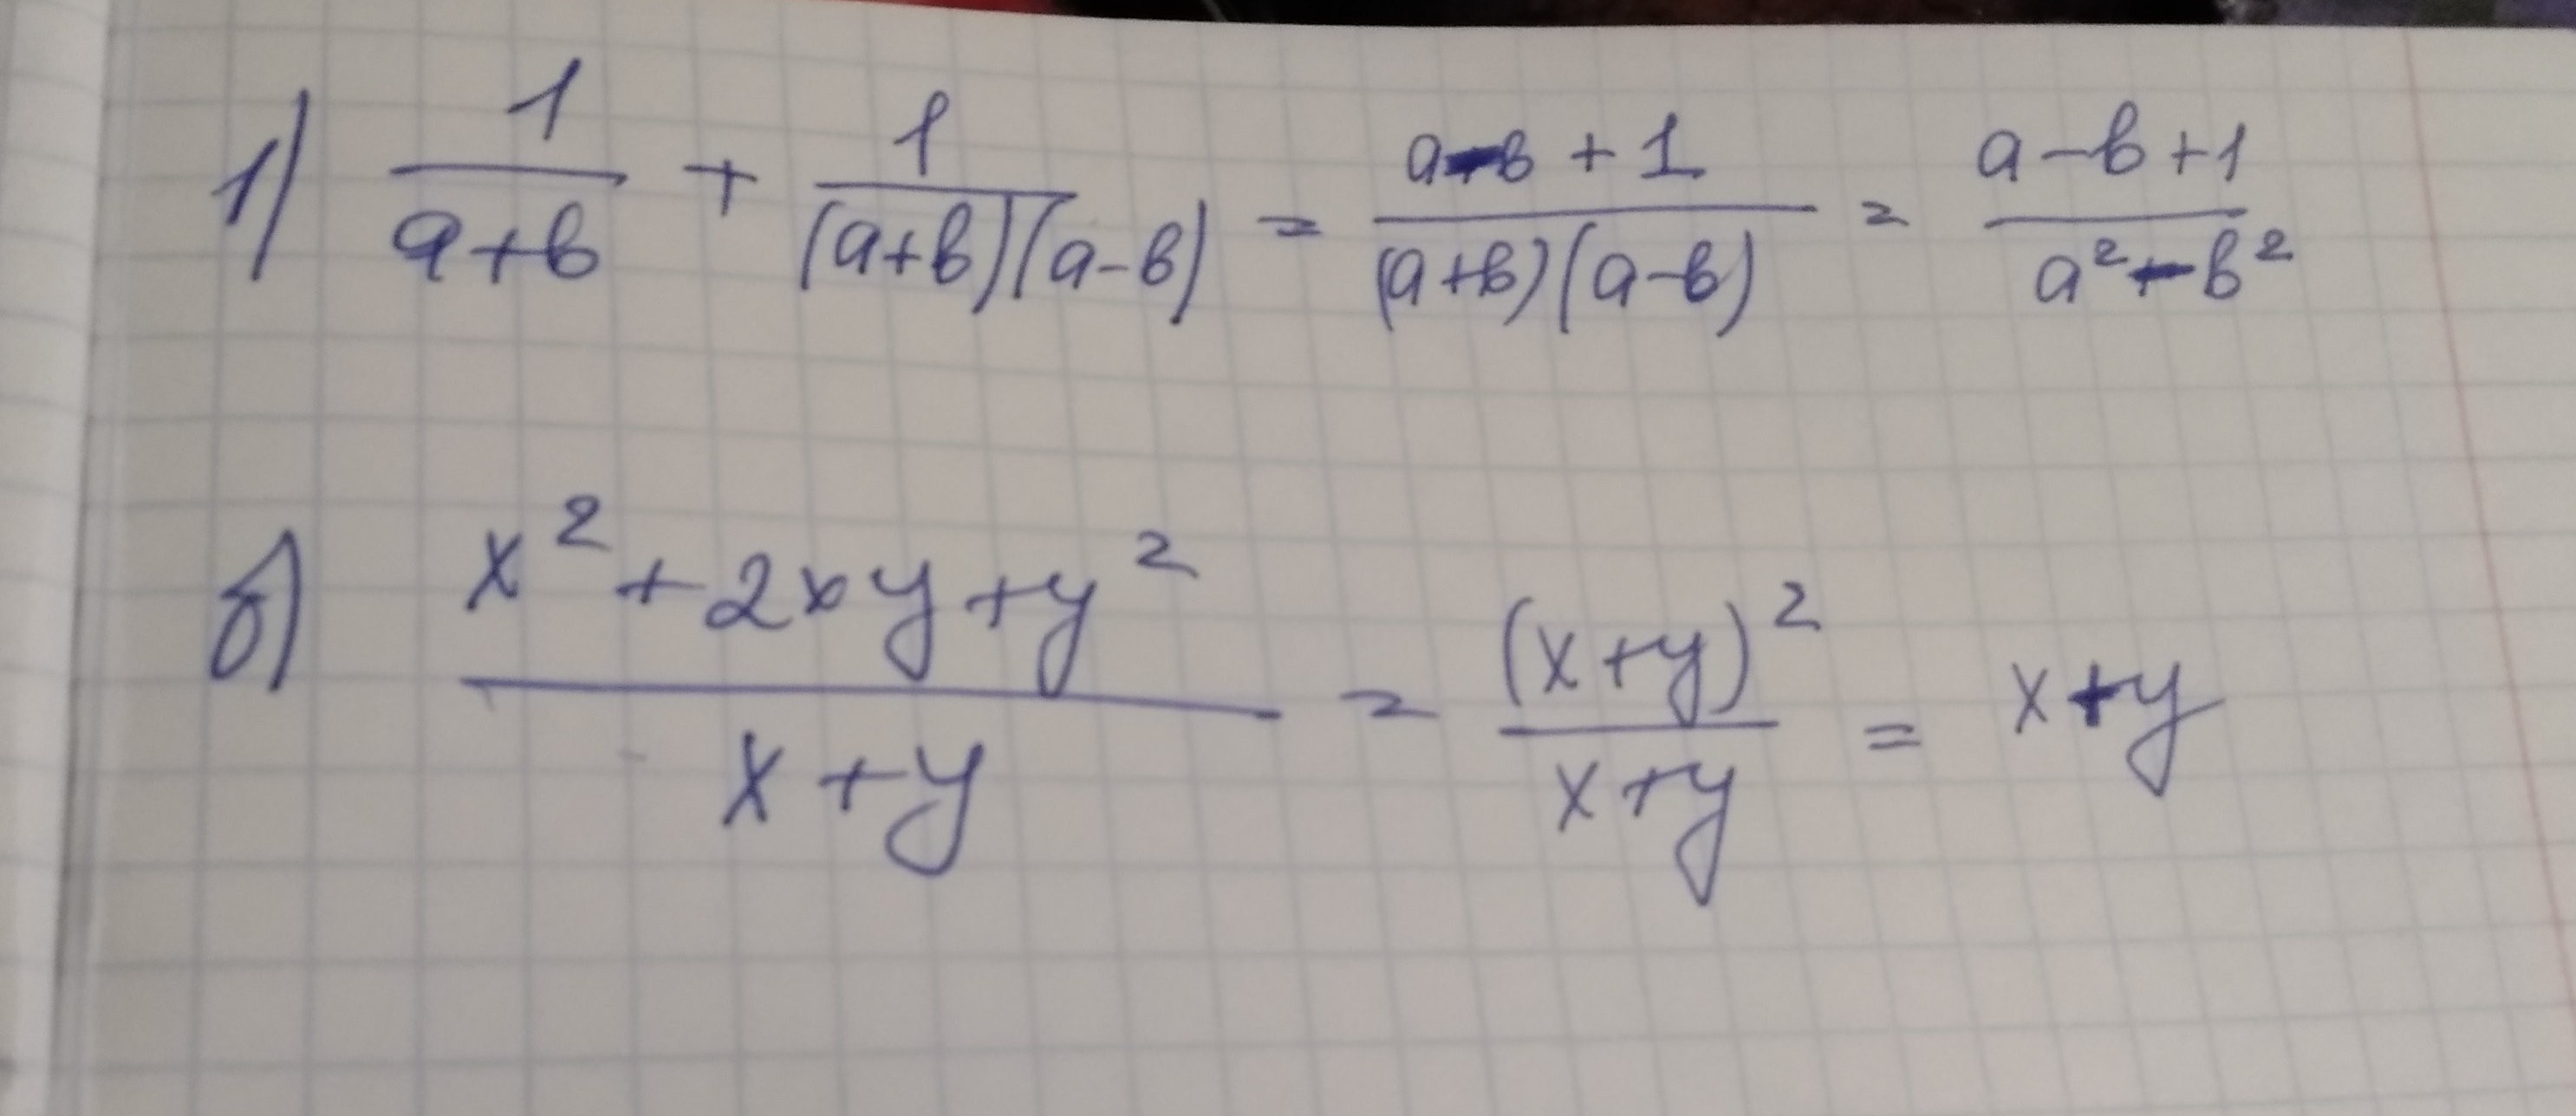 1) 1/(a+b) + 1/((a+b)(a-b)) = (a-b+1)/((a+b)(a-b)) = (a-b+1)/(a²-b²)
б) (x²+2xy+y²)/(x+y) = (x+y)²/(x+y) = x+y